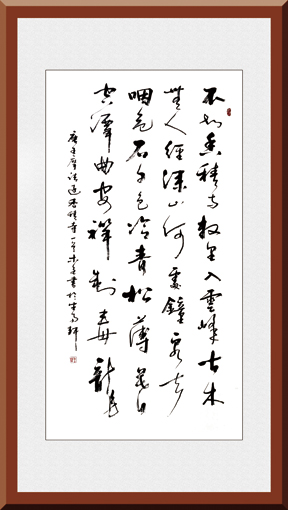 不知香積寺數里入雲峰古木
無人徑深山何處鐘泉聲
咽危石日色冷青松薄暮
空潭曲安禪制毒龍
唐王摩詰過香積寺一首書於